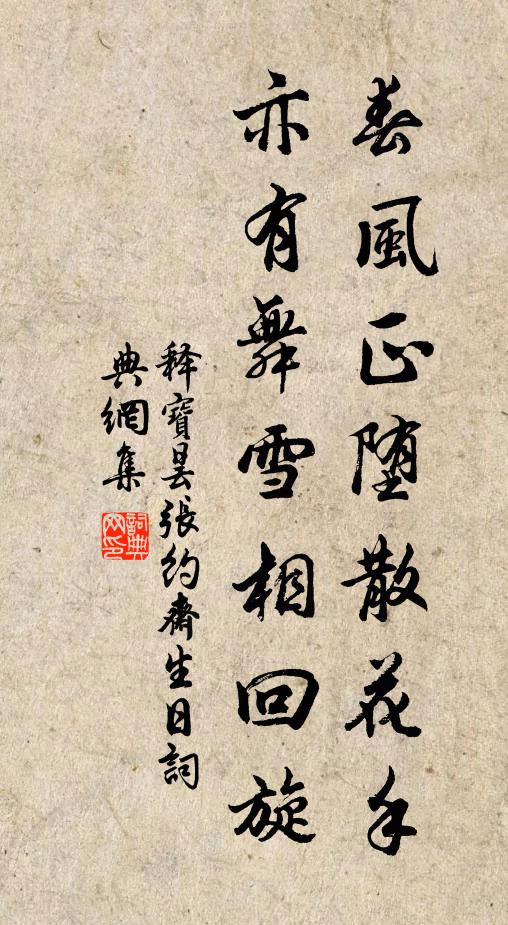 春風正堕散花手
亦有舞雪相回旋
釋寶曇張約齋生日詞
典網集
詞典
网印